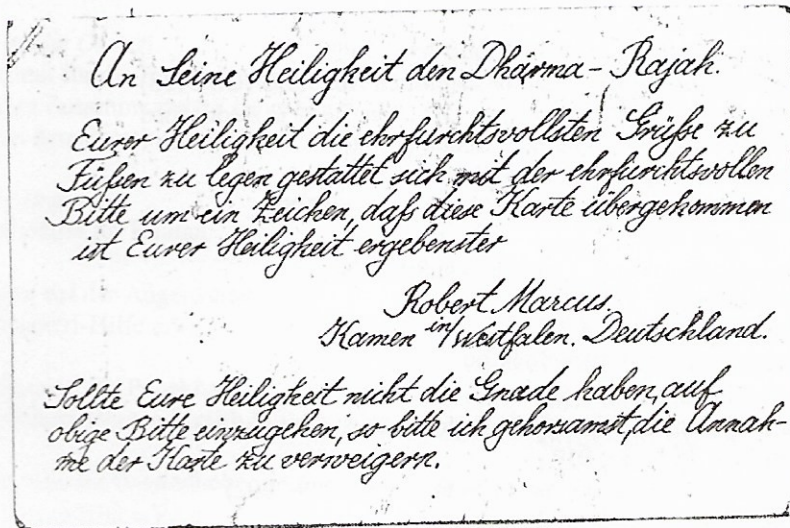 An Seine Heiligkeit den Dhárma-Rajah.
Eurer Heiligkeit die ehrfurchtsvollsten Grüße zu
Füßen zu legen gestattet sich mit der ehrfurchtsvollen
Bitte um ein Zeichen, daß diese Karte übergekommen
ist Eurer Heiligkeit ergebenster
Robert Marcus.
Kamen in/Westfalen. Deutschland.
Sollte Eure Heiligkeit nicht die Gnade haben, auf
obige Bitte einzugehen, so bitte ich gehorsamst, die Annah-
me der Karte zu verweigern.